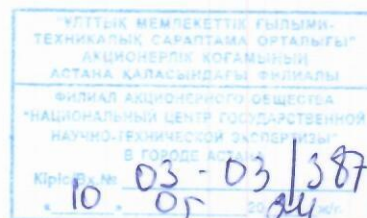 "ҰЛТТЫҚ МЕМЛЕКЕТТІК ҒЫЛЫМИ-
ТЕХНИКАЛЫҚ САРАПТАМА ОРТАЛЫҒЫ"
АКЦИОНЕРЛІК ҚОҒАМЫНЫҢ
АСТАНА ҚАЛАСЫНДАҒЫ ФИЛИАЛЫ
ФИЛИАЛ АКЦИОНЕРНОГО ОБЩЕСТВА
"НАЦИОНАЛЬНЫЙ ЦЕНТР ГОСУДАРСТВЕННОЙ
НАУЧНО-ТЕХНИЧЕСКОЙ ЭКСПЕРТИЗЫ"
В ГОРОДЕ АСТАНА
Кіріс/Вх № 03-03/387
« 10 » 05 20 ж/г.